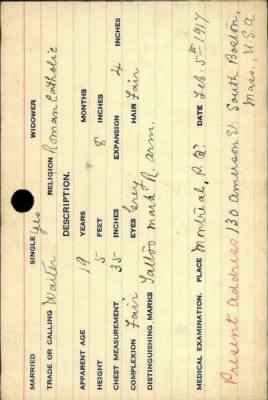 MARRIED SINGLE Yes WIDOWER
TRADE OR CALLING Waiter RELIGION Roman Catholic
DESCRIPTION.
APPARENT AGE 19 YEARS MONTHS
HEIGHT 5 FEET 8 INCHES
CHEST MEASUREMENT 35 INCHES EXPANSION 4 INCHES
COMPLEXION Fair EYES Grey HAIR Fair
DISTINGUISHING MARKS Tattoo mark R. arm.
MEDICAL EXAMINATION. PLACE Montreal, P.Q. DATE Feb. 5th 1917
Present address 130 Amerson St. South Boston,
Mass., U.S.A